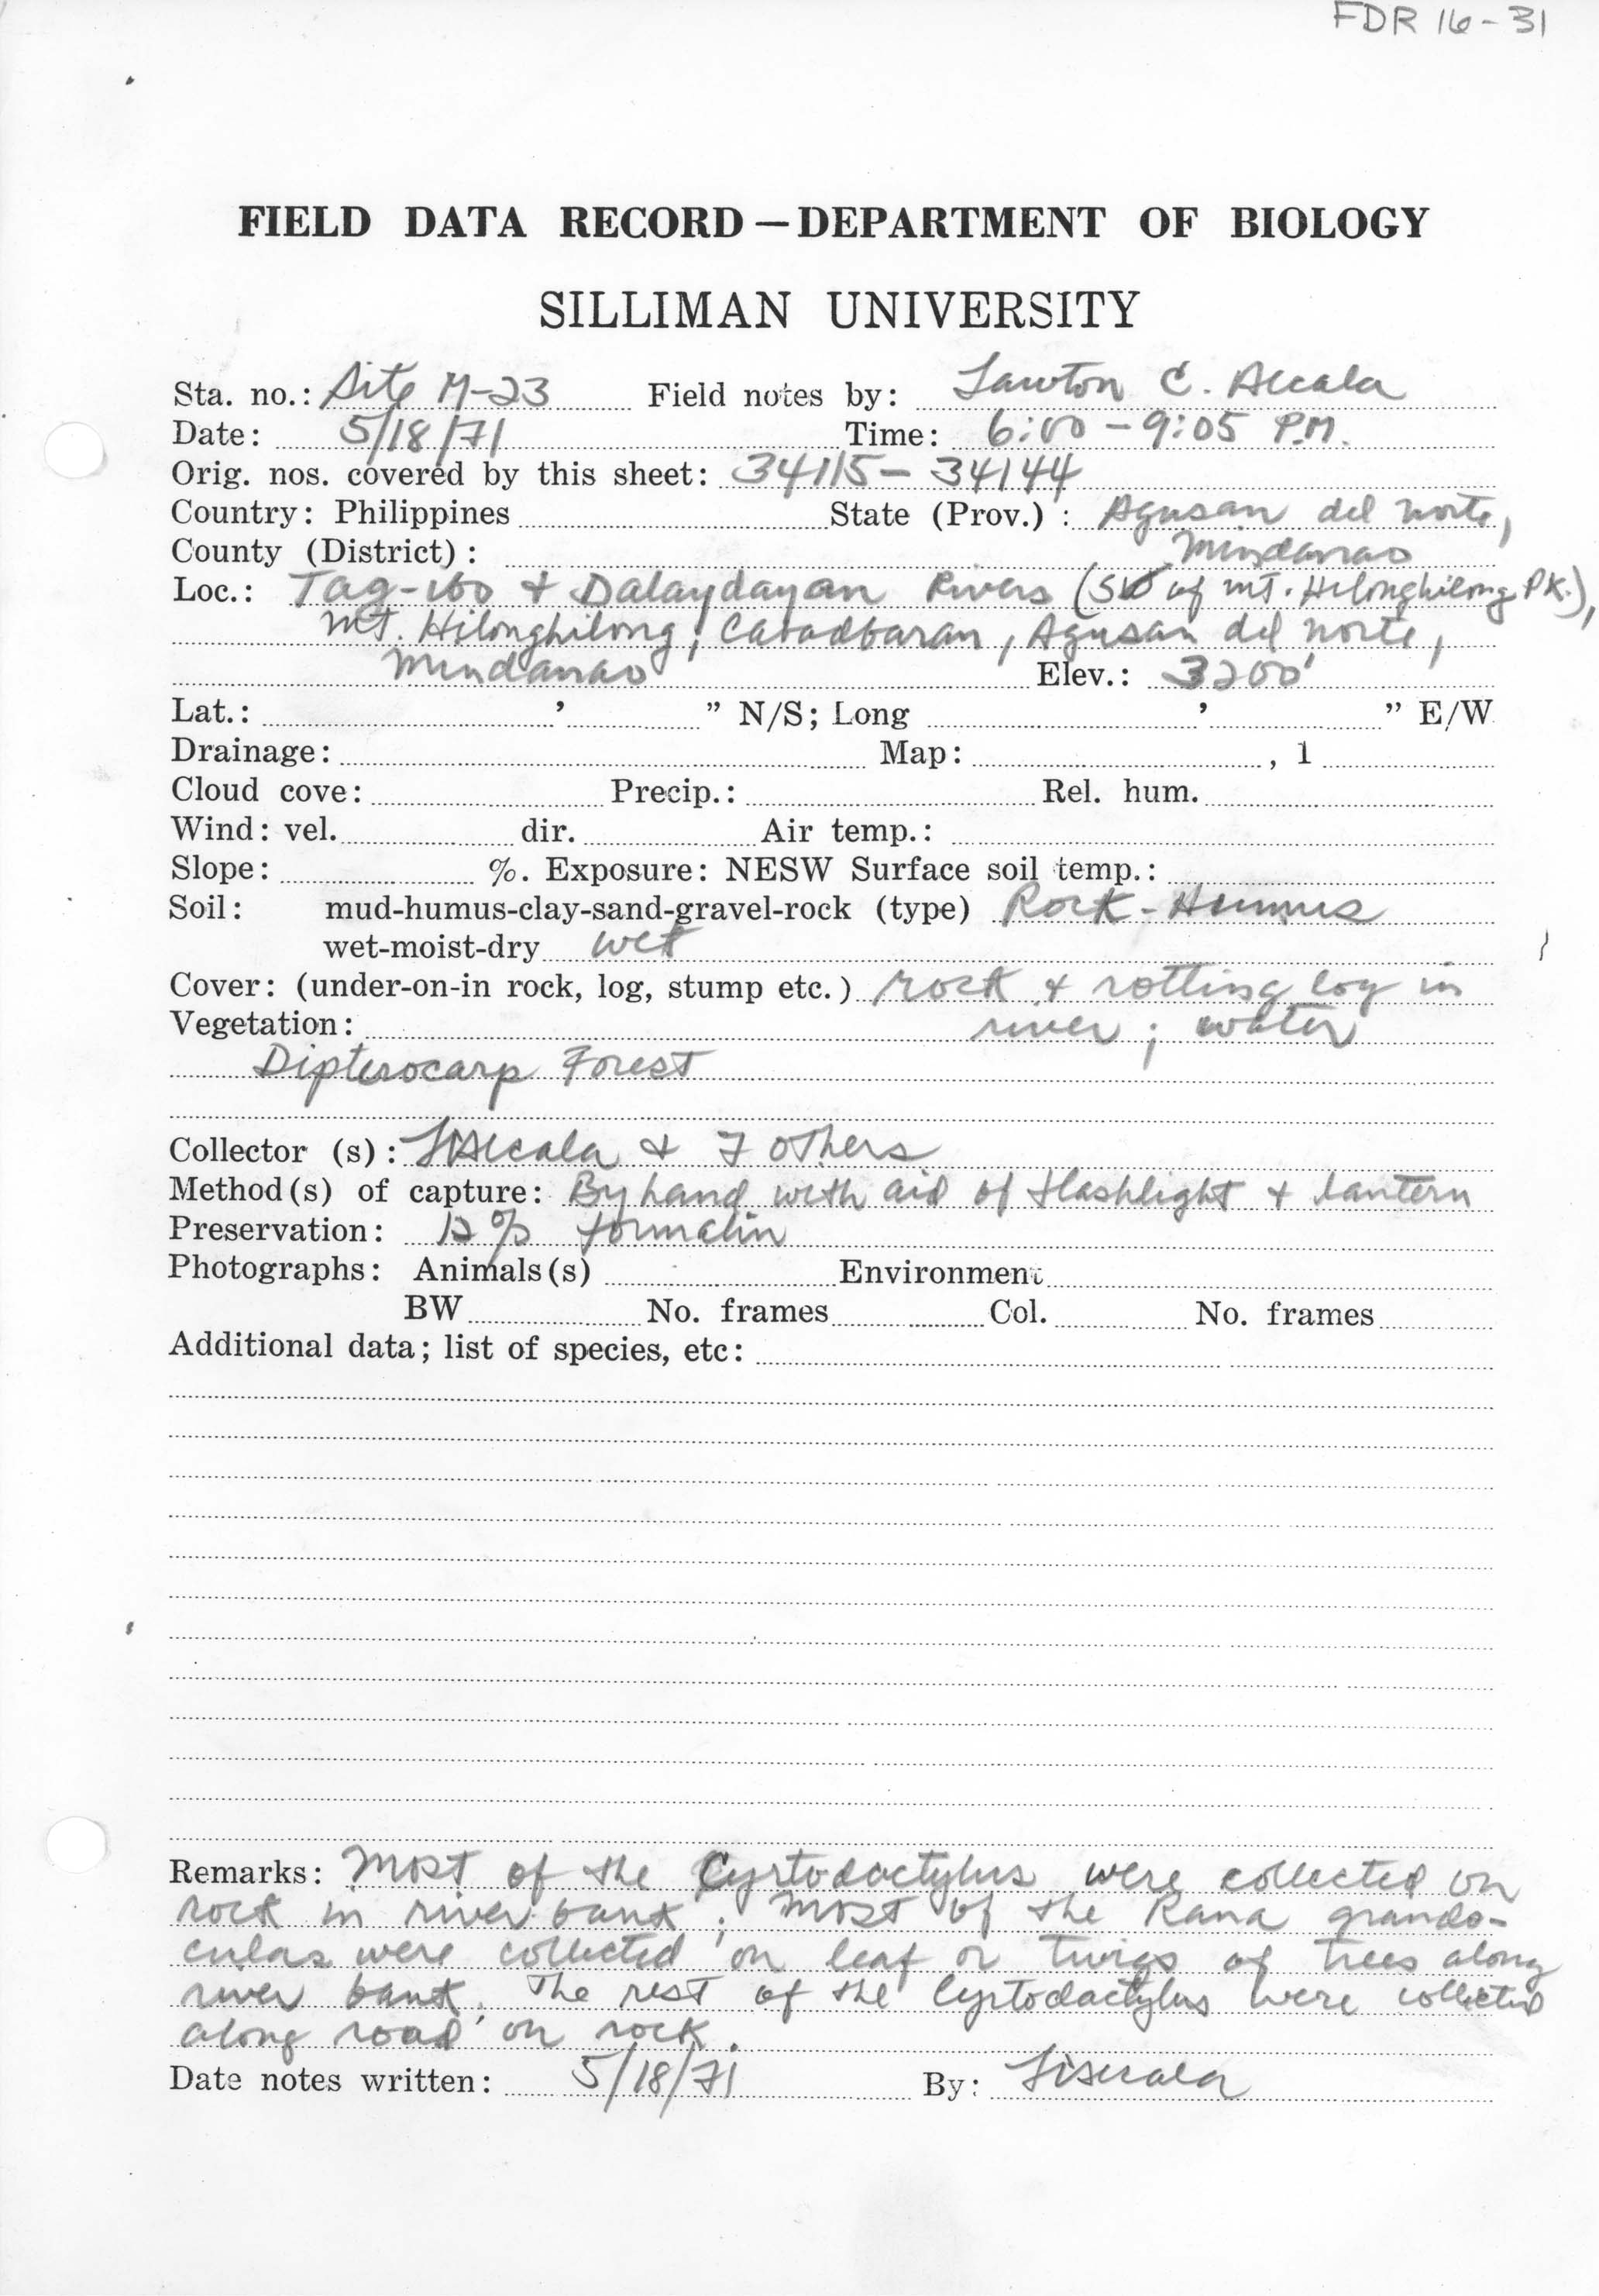 FDR 16-31
FIELD DATA RECORD — DEPARTMENT OF BIOLOGY
SILLIMAN UNIVERSITY
Sta. no.: Site M-23 Field notes by: Lawton C. Alcala
Date: 5/18/71 Time: 6:00 - 9:05 P.M.
Orig. nos. covered by this sheet: 34115 - 34144
Country: Philippines State (Prov.): Agusan del norte,
County (District): Mindanao
Loc.: Tag-ibo & Dalaydayan Rivers (SW of mt. Hilonghilong PK.),
mt. Hilonghilong, Cabadbaran, Agusan del norte,
Mindanao Elev.: 3200'
Lat.: ' " N/S; Long ' " E/W
Drainage: Map: , 1
Cloud cove: Precip.: Rel. hum.
Wind: vel. dir. Air temp.:
Slope: %. Exposure: NESW Surface soil temp.:
Soil: mud-humus-clay-sand-gravel-rock (type) Rock - Humus
wet-moist-dry wet
Cover: (under-on-in rock, log, stump etc.) rock & rotting log in
Vegetation: river; water
Dipterocarp Forest
Collector (s): LAlcala & 7 others
Method(s) of capture: By hand with aid of flashlight & lantern
Preservation: 12% formalin
Photographs: Animals(s) Environment
BW No. frames Col. No. frames
Additional data; list of species, etc:
Remarks: Most of the Cyrtodactylus were collected on
rock in river bank; most of the Rana grando-
culas were collected on leaf or twigs of trees along
river bank. The rest of the Cyrtodactylus were collected
along road on rock.
Date notes written: 5/18/71 By: LAlcala